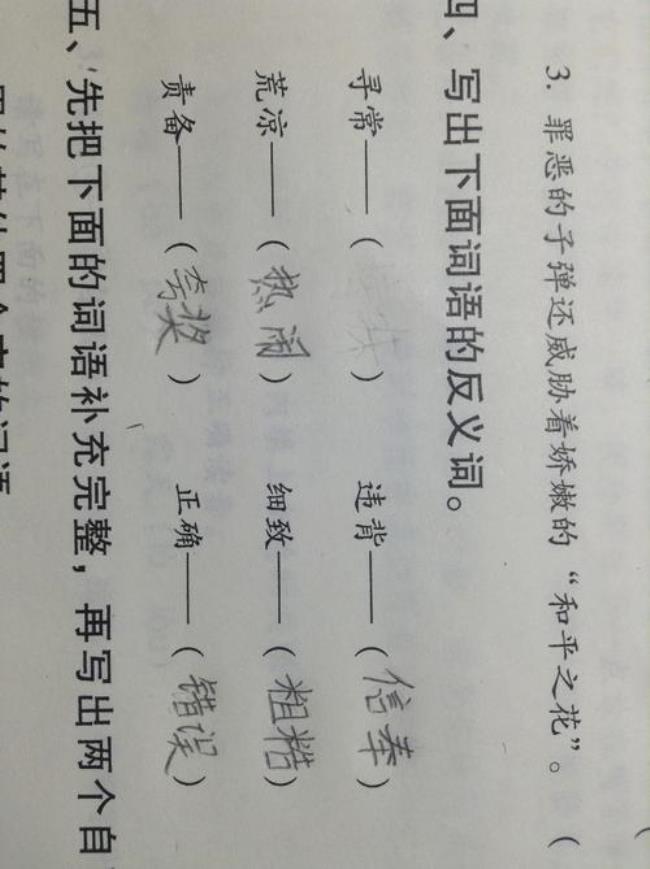 3. 罪恶的子弹还威胁着娇嫩的“和平之花”。 (
四、写出下面词语的反义词。
寻常——( ) 违背——(信奉)
荒凉——(热闹) 细致——(粗糙)
责备——(夸奖) 正确——(错误)
五、先把下面的词语补充完整，再写出两个自